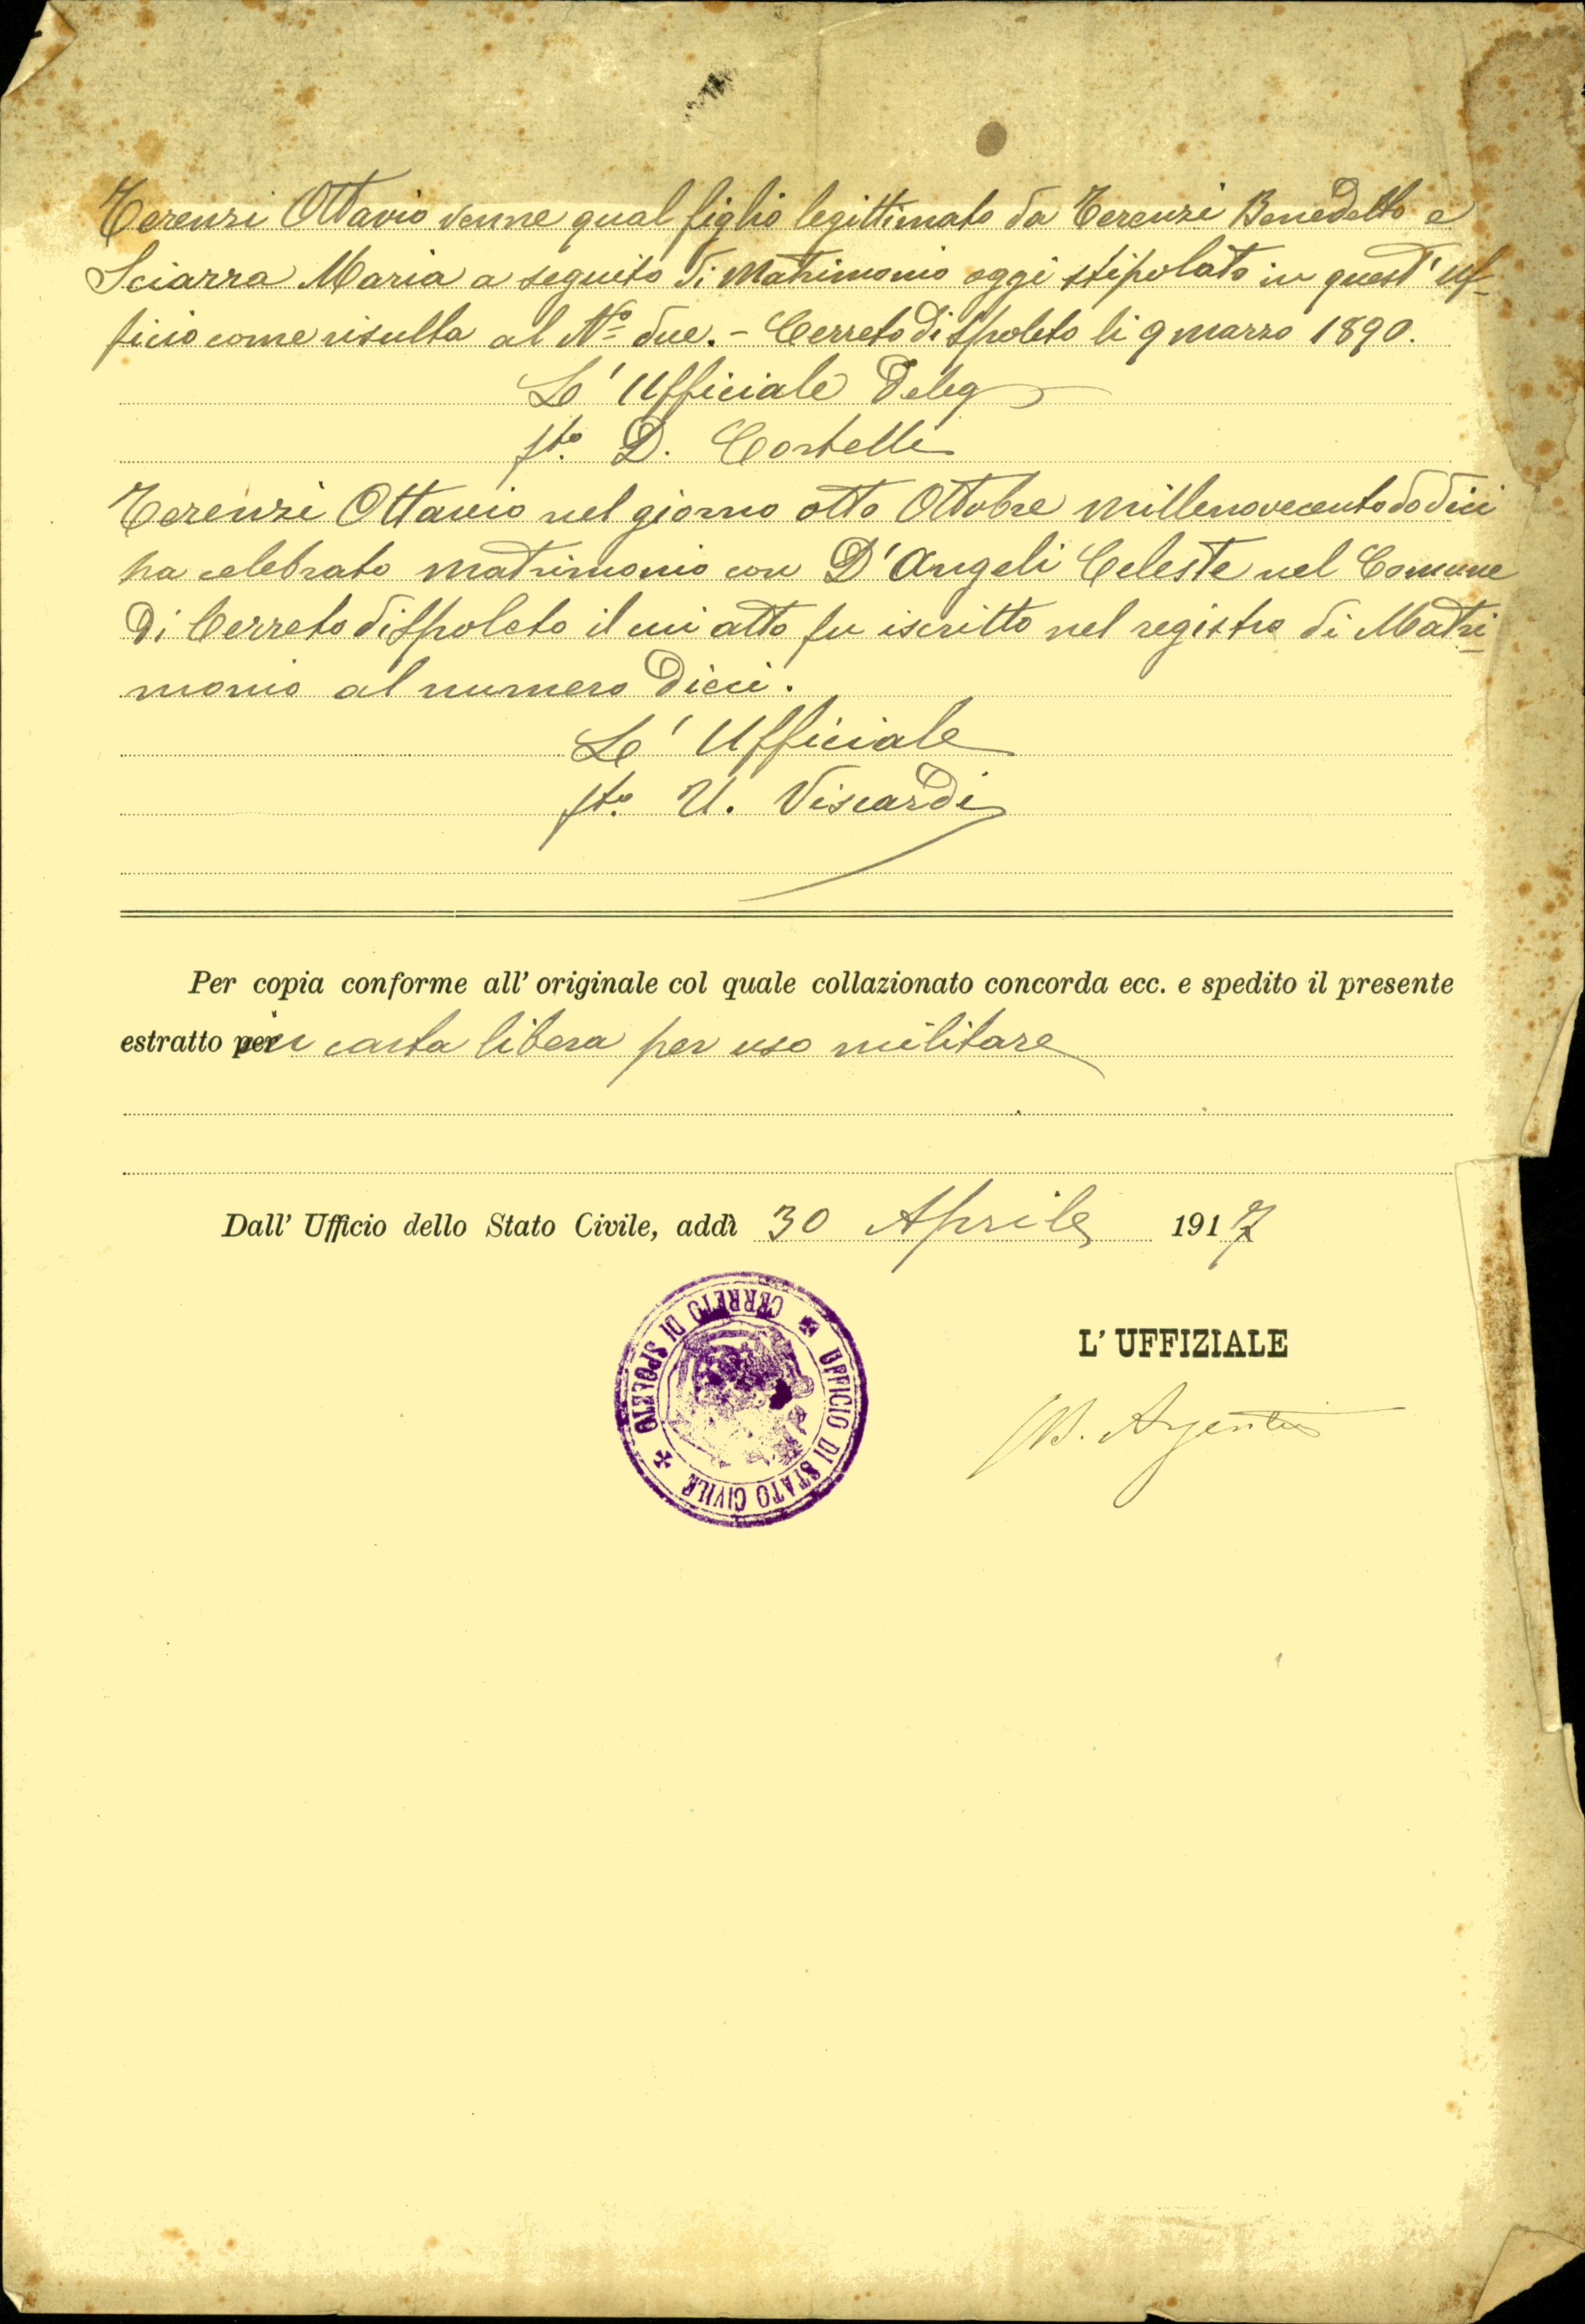 Terenzi Ottavio venne qual figlio legittimato da Terenzi Benedetto e
Sciarra Maria a seguito di Matrimonio oggi stipolato in quest' uf-
ficio come risulta al Nº due. - Cerreto di Spoleto li 9 marzo 1890.
L' Ufficiale Deleg
fto. D. Cortelli
Terenzi Ottavio nel giorno otto Ottobre millenovecentododici
ha celebrato matrimonio con D'Angeli Celeste nel Comune
Di Cerreto di Spoleto il cui atto fu iscritto nel registro di Matri-
monio al numero Dieci.
L' Ufficiale
fto. U. Viscardi
Per copia conforme all' originale col quale collazionato concorda ecc. e spedito il presente
estratto per in carta libera per uso militare
Dall' Ufficio dello Stato Civile, addì 30 Aprile 1917
UFFICIO DI STATO CIVILE
CERRETO DI SPOLETO
L' UFFIZIALE
Argenti